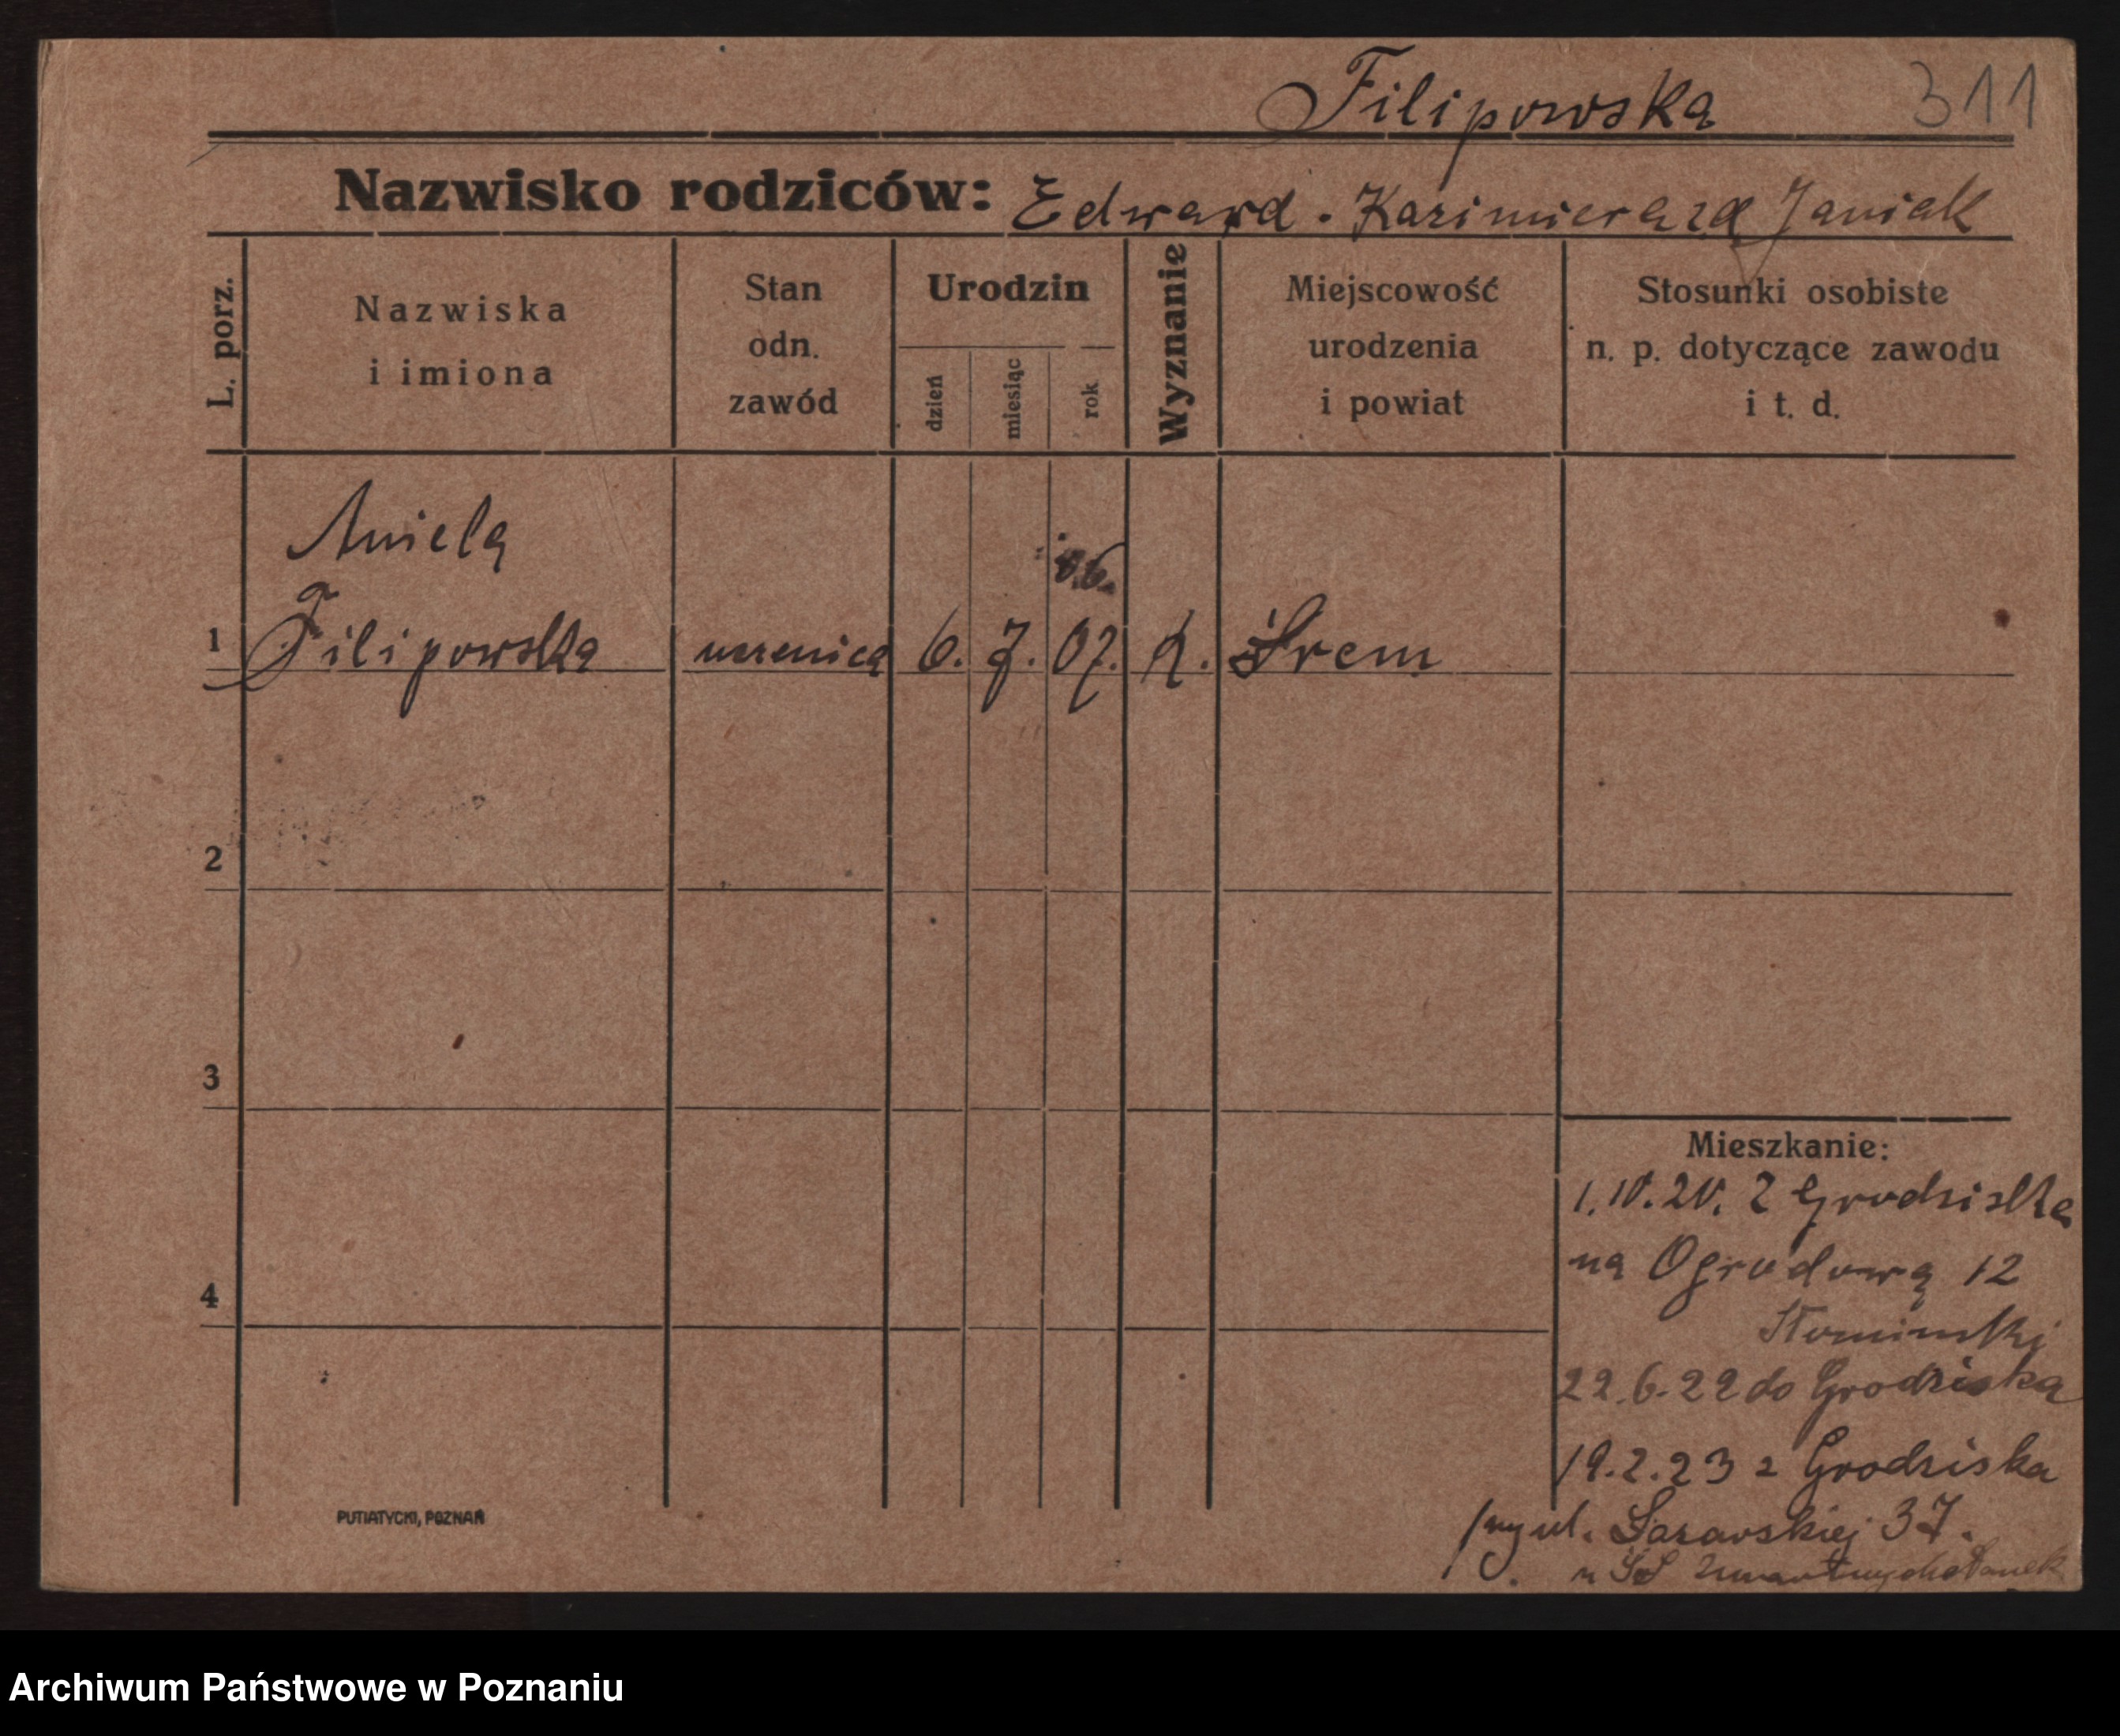 Filipowska 311
Nazwisko rodziców: Edward. Kazimiera zd Janiak
L. porz.
Nazwiska
i imiona
Stan
odn.
zawód
Urodzin
dzień
miesiąc
rok
Wyznanie
Miejscowość
urodzenia
i powiat
Stosunki osobiste
n. p. dotyczące zawodu
i t. d.
Aniela
06.
1 Filipowska uczenica 6. 7. 07. k. Śrem
2
3
4
Mieszkanie:
1.10.20. z Grodziska
na Ogrodową 12
Słomiński
22.6.22 do Grodziska
19.2.23 z Grodziska
przy ul. 37.
u SS
PUTIATYCKI, POZNAŃ
Archiwum Państwowe w Poznaniu